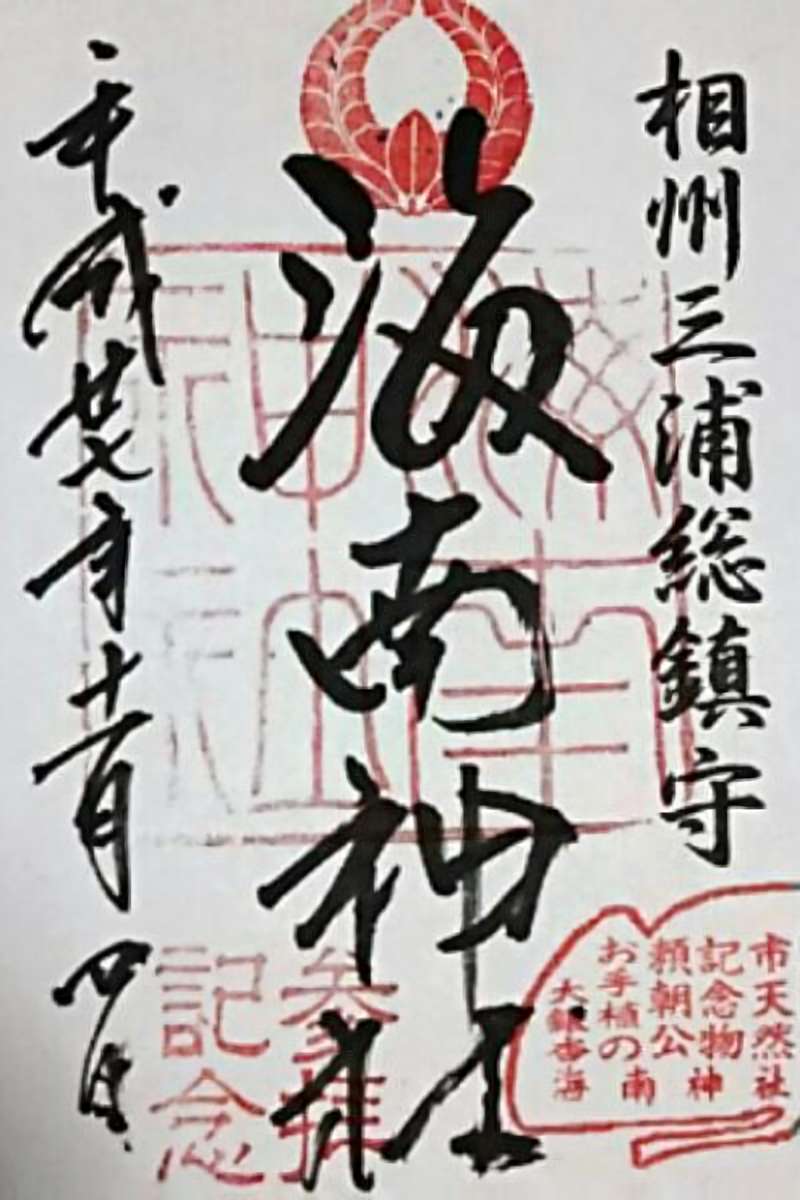 相州三浦総鎮守
海南神社
平成廿七年十一月四日
海南
神社
参拝
記念
市天然
記念物
頼朝公
お手植の
大銀杏
海南神社